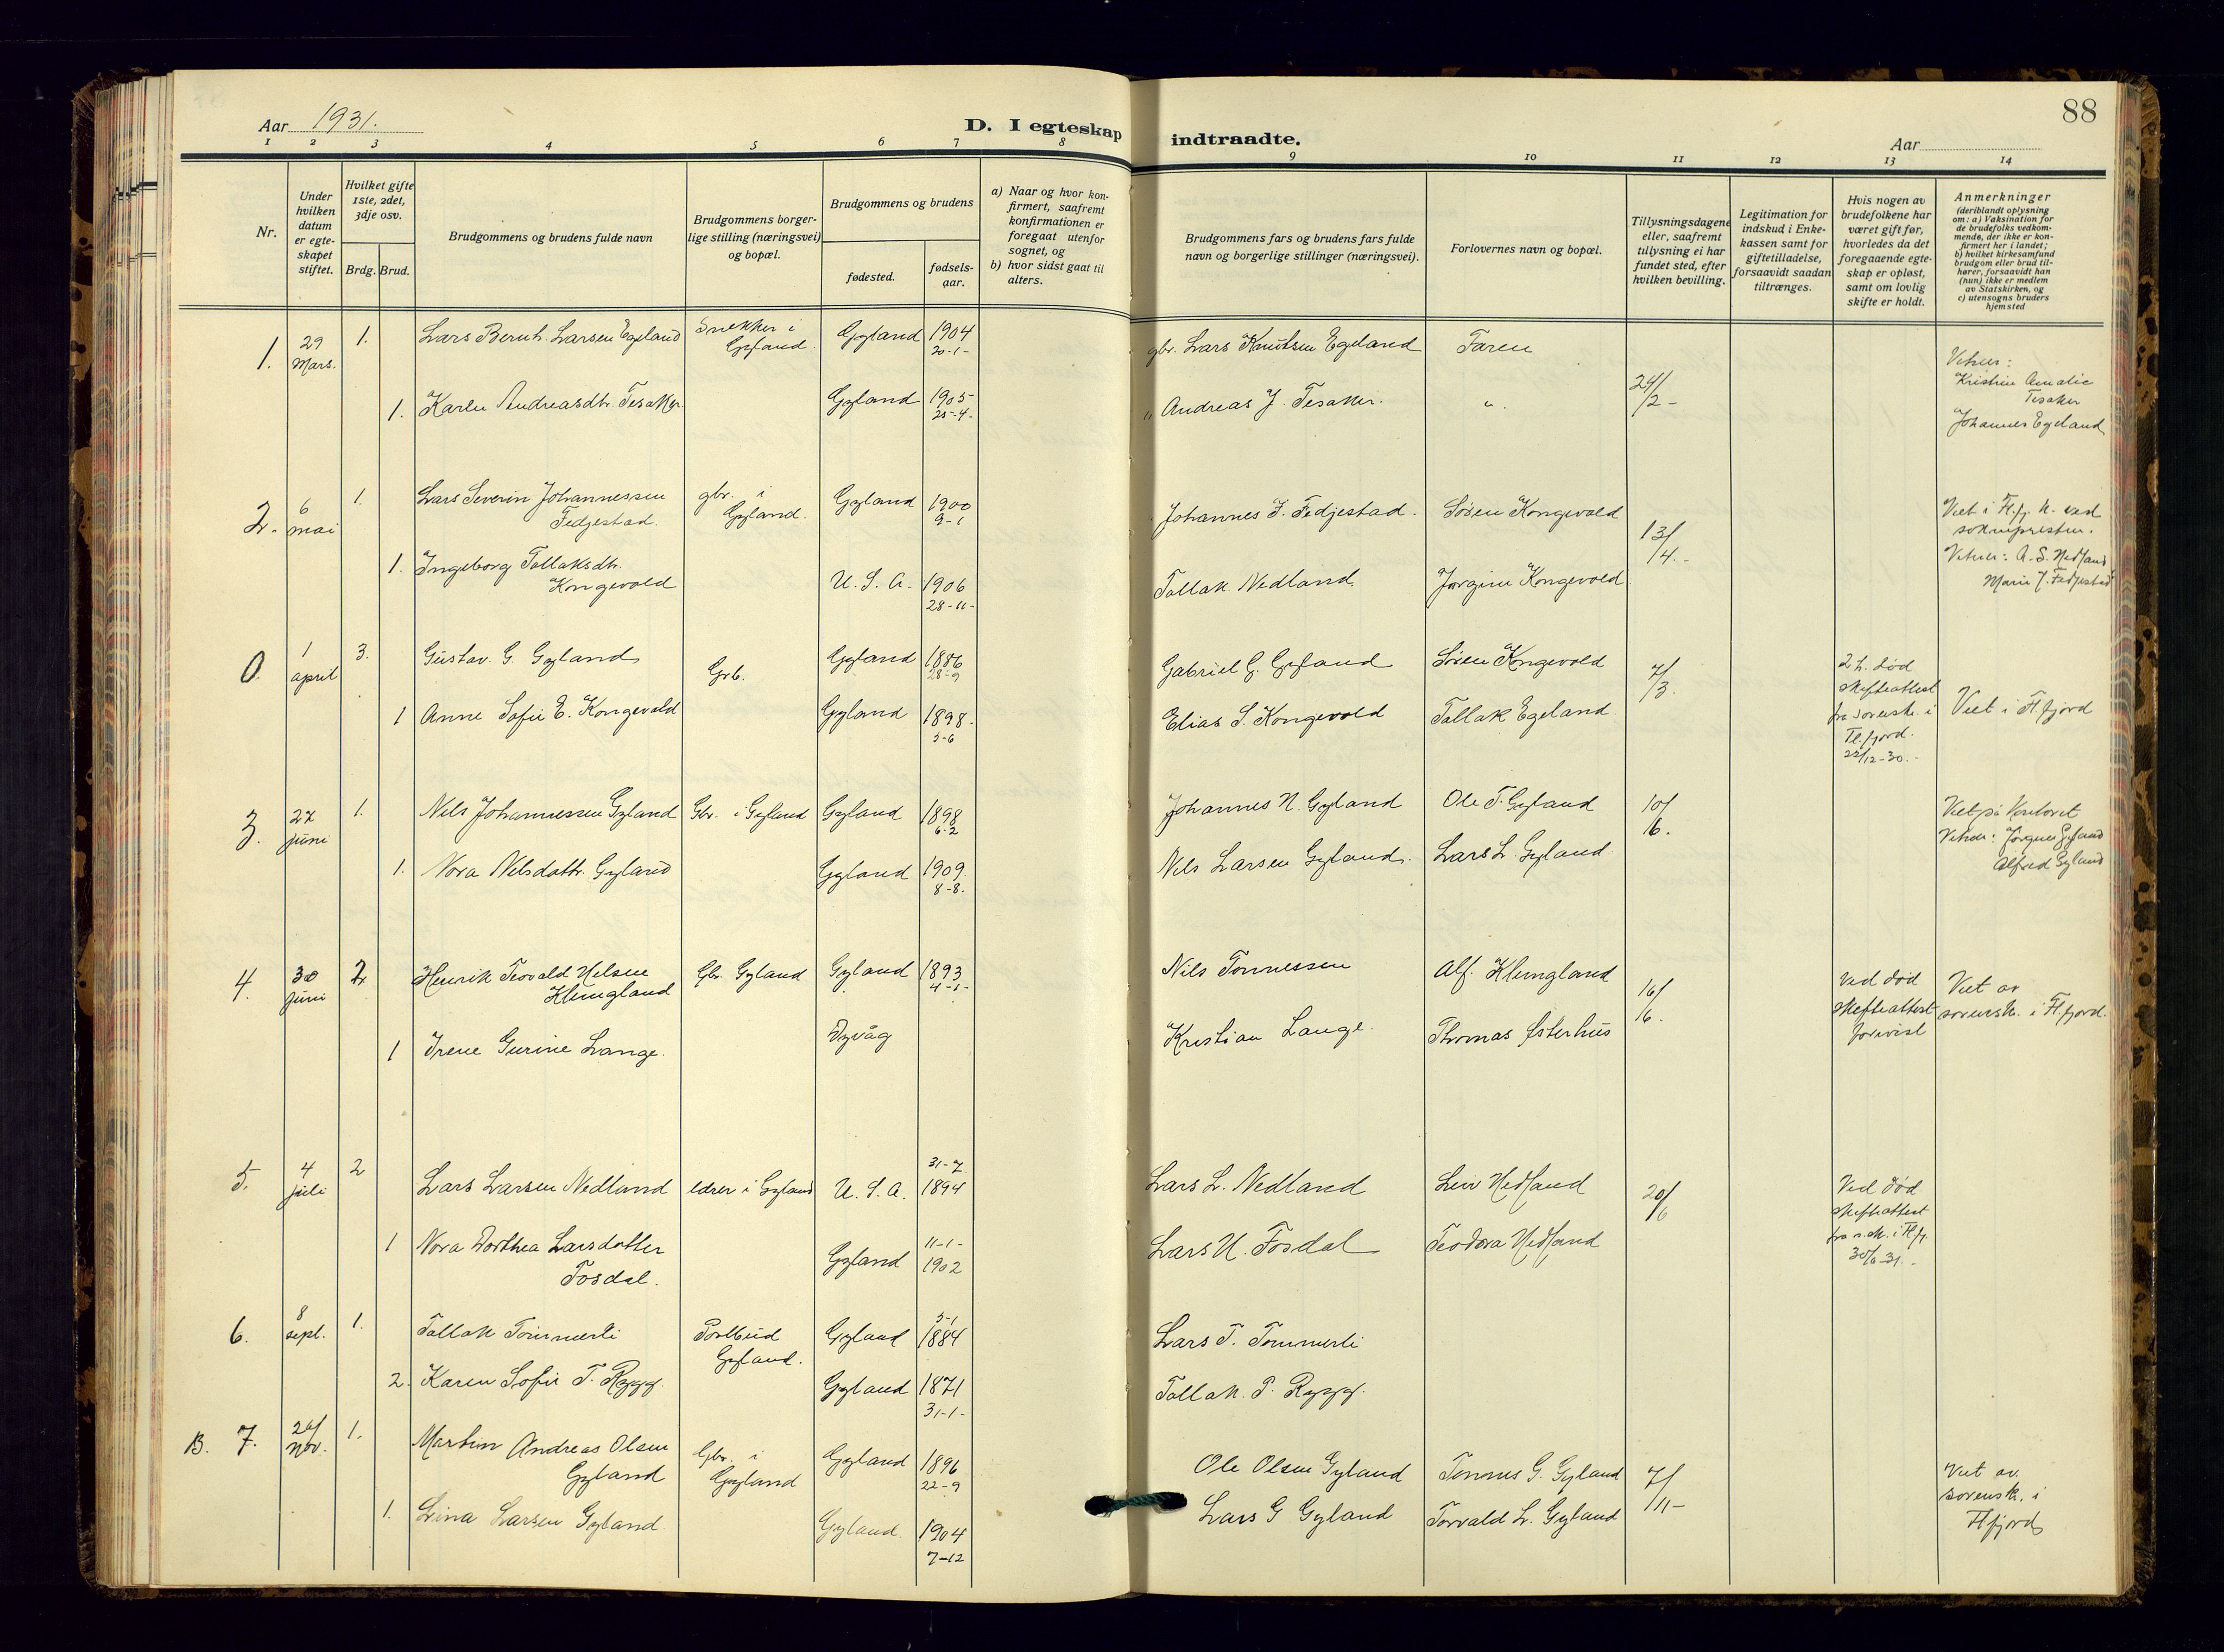 88
Aar 1931.
D. I egteskap indtraadte.
Aar
1 2 3 4 5 6 7 8 9 10 11 12 13 14
Nr.
Under hvilken datum er egteskapet stiftet.
Hvilket gifte 1ste, 2det, 3dje osv.
Brdg. Brud.
Brudgommens og brudens fulde navn
Brudgommens borgerlige stilling (næringsvei) og bopæl.
Brudgommens og brudens
fødested.
fødselsaar.
a) Naar og hvor konfirmert, saafremt konfirmationen er foregaat utenfor sognet, og
b) hvor sidst gaat til alters.
Brudgommens fars og brudens fars fulde navn og borgerlige stillinger (næringsvei).
Forlovernes navn og bopæl.
Tillysningsdagene eller, saafremt tillysning ei har fundet sted, efter hvilken bevilling.
Legitimation for indskud i Enkekassen samt for giftetilladelse, forsaavidt saadan tiltrænges.
Hvis nogen av brudefolkene har været gift før, hvorledes da det foregaaende egteskap er opløst, samt om lovlig skifte er holdt.
Anmerkninger
(deriblandt oplysning om: a) Vaksination for de brudefolks vedkommende, der ikke er konfirmert her i landet; b) hvilket kirkesamfund brudgom eller brud tilhører, forsaavidt han (hun) ikke er medlem av Statskirken, og c) utensogns bruders hjemsted
1. 29 Mars. 1. Lars Bernh. Larsen Egeland Snekker i Gyland Gyland 1904 20-1- gbr. Lars Knutsen Egeland Faren
1. Karen Andreasdtr. Tesaker Gyland 1905 25-4- " Andreas J. Tesaker. " 24/2-
Vitner:
Kristine Amalie
Tesaker
Johannes Egeland
2. 6 mai 1. Lars Severin Johannessen
Fedjestad. gbr. i Gyland. Gyland 1900 9-1 Johannes J. Fedjestad. Sören Kongevold
1. Ingeborg Tollaksdtr.
Kongevold U. S. A. 1906 28-11- Tollak Nedland. Jørgine Kongevold 13/4.-
Viet i Fl.fj. k. ved
soknepresten.
Vitner: A. S. Nedland
Marie J. Fedjestad
0. 1 april 3. Gustav. G. Gyland Grb. Gyland 1886 28-9 Gabriel G. Gyland Sören Kongevold 7/3.
1 Anne Sofie E. Kongevold Gyland 1898. 5-6 Elias S. Kongevold Tollak Egeland
2 h. död
skifteattest
fra sorensk. i
Fl.fjord.
22/12-30.-
Viet i Fl.fjord
3. 27 juni 1. Nils Johannessen Gyland Gbr. i Gyland Gyland 1898 6-2 Johannes N. Gyland Ole T. Gyland 10/6.
1. Nora Nilsdattr. Gyland Gyland 1909. 8-8. Nils Larsen Gyland. Lars L. Gyland
Viet på kontoret
Vitner: Jørgen Gyland
Alfred Gyland
4. 30 juni 2 Henrik Teovald Nilsen
Klungland Gbr. Gyland Gyland 1893 4-1- Nils Tønnessen Alf. Klungland 16/6.
1 Irene Gurine Lange. Dyvåg Kristian Lange. Thomas Østerhus
Ved död
skifteattest
forevist
Viet av
sorensk. i Fl.fjord.
5. 4 juli 2 Lars Larsen Nedland i Gyland U. S. A. 31-7 1894 Lars L. Nedland Leiv Nedland 20/6
1 Nora Dorthea Larsdatter
Fosdal. Gyland 11-1- 1902 Lars N. Fosdal Teodora Nedland
Ved död
skifteattest
fra s.sk. i Fl.fj.
30/6-31.-
6. 8 sept. 1. Tollak Tømmerli Postbud Gyland. Gyland 5-1 1884 Lars T. Tømmerli
2. Karen Sofie T. Rygg. Gyland 1871 31-1- Tollak T. Rygg.
B. 7. 20/ nov. 1. Martin Andreas Olsen
Gyland Gbr. i Gyland Gyland 1896 22-9 Ole Olsen Gyland Tønnes G. Gyland 7/11-
1. Lina Larsen Gyland Gyland. 1904 7-12 Lars G Gyland Torvald L. Gyland
Viet av
sorensk. i
Flfjord